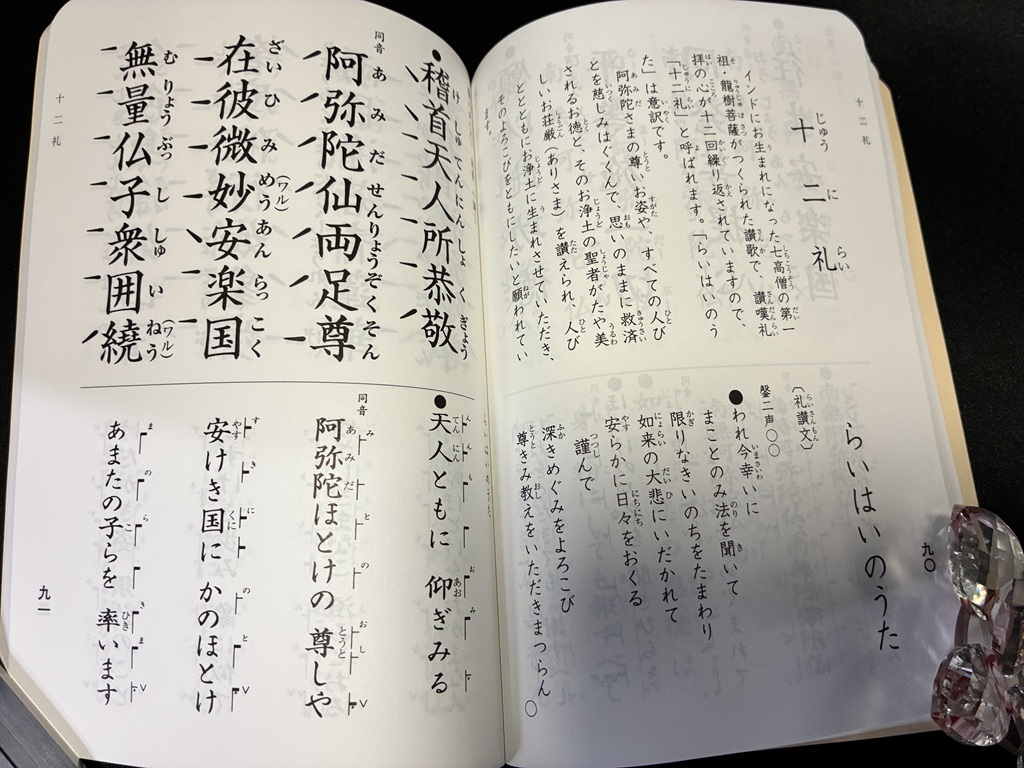 十二礼
十二礼
インドにお生まれになった七高僧の第一
祖・龍樹菩薩がつくられた讃歌で、讃嘆礼
拝の心が十二回繰り返されていますので、
「十二礼」と呼ばれます。「らいはいのう
た」は意訳です。
阿弥陀さまの尊いお姿や、すべての人び
とを慈しみはぐくんで、思いのままに救済
されるお徳と、そのお浄土の聖者がたや美
しいお荘厳（ありさま）を讃えられ、人び
とともにお浄土に生まれさせていただき、
そのよろこびをともにしたいと願われてい
ます。
らいはいのうた
九〇
〔礼讃文〕
鏧二声〇〇
●われ今幸いに
まことのみ法を聞いて
限りなきいのちをたまわり
如来の大悲にいだかれて
安らかに日々をおくる
謹んで
深きめぐみをよろこび
尊きみ教えをいただきまつらん〇
●稽首天人所恭敬
同音
阿弥陀仙両足尊
在彼微妙安楽国
無量仏子衆囲繞
十二礼
●天人ともに 仰ぎみる
同音
阿弥陀ほとけの 尊しや
安けき国に かのほとけ
あまたの子らを 率います
九一